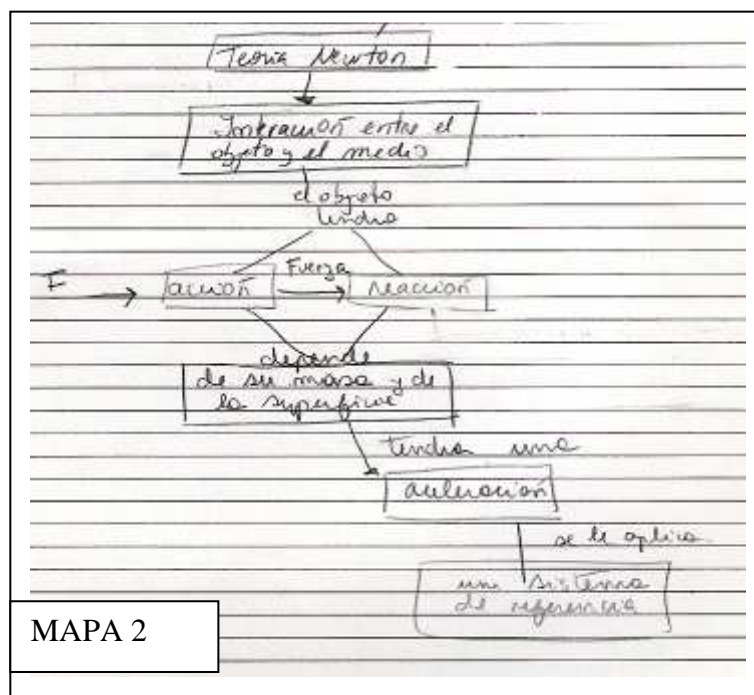 Teoria Newton
Interacion entre el
objeto y el medio
el objeto
tendra
F
acción
Fuerza
reaccion
depende
de su masa y de
la superficie
tendra una
aceleración
se le aplica
un sistema
de referencia
MAPA 2